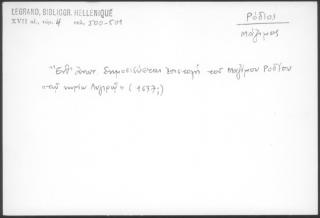 LEGRAND, BIBLIOGR. HELLENIQUE
XVII αἰ., τόμ. 4 σελ. 500-501
Ρόδιος
Μάξιμος
Ἔνθ' ἄνω δημοσιεύεται ἐπιστολή τοῦ Μαξίμου Ροδίου
"τῷ κυρίῳ Λιγαρῷ" (1637;)